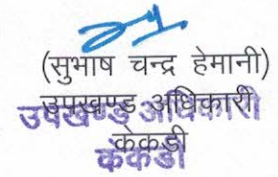 (सुभाष चन्द्र हेमानी)
उपखण्ड अधिकारी
उपखण्ड अधिकारी
केकडी
केकडी